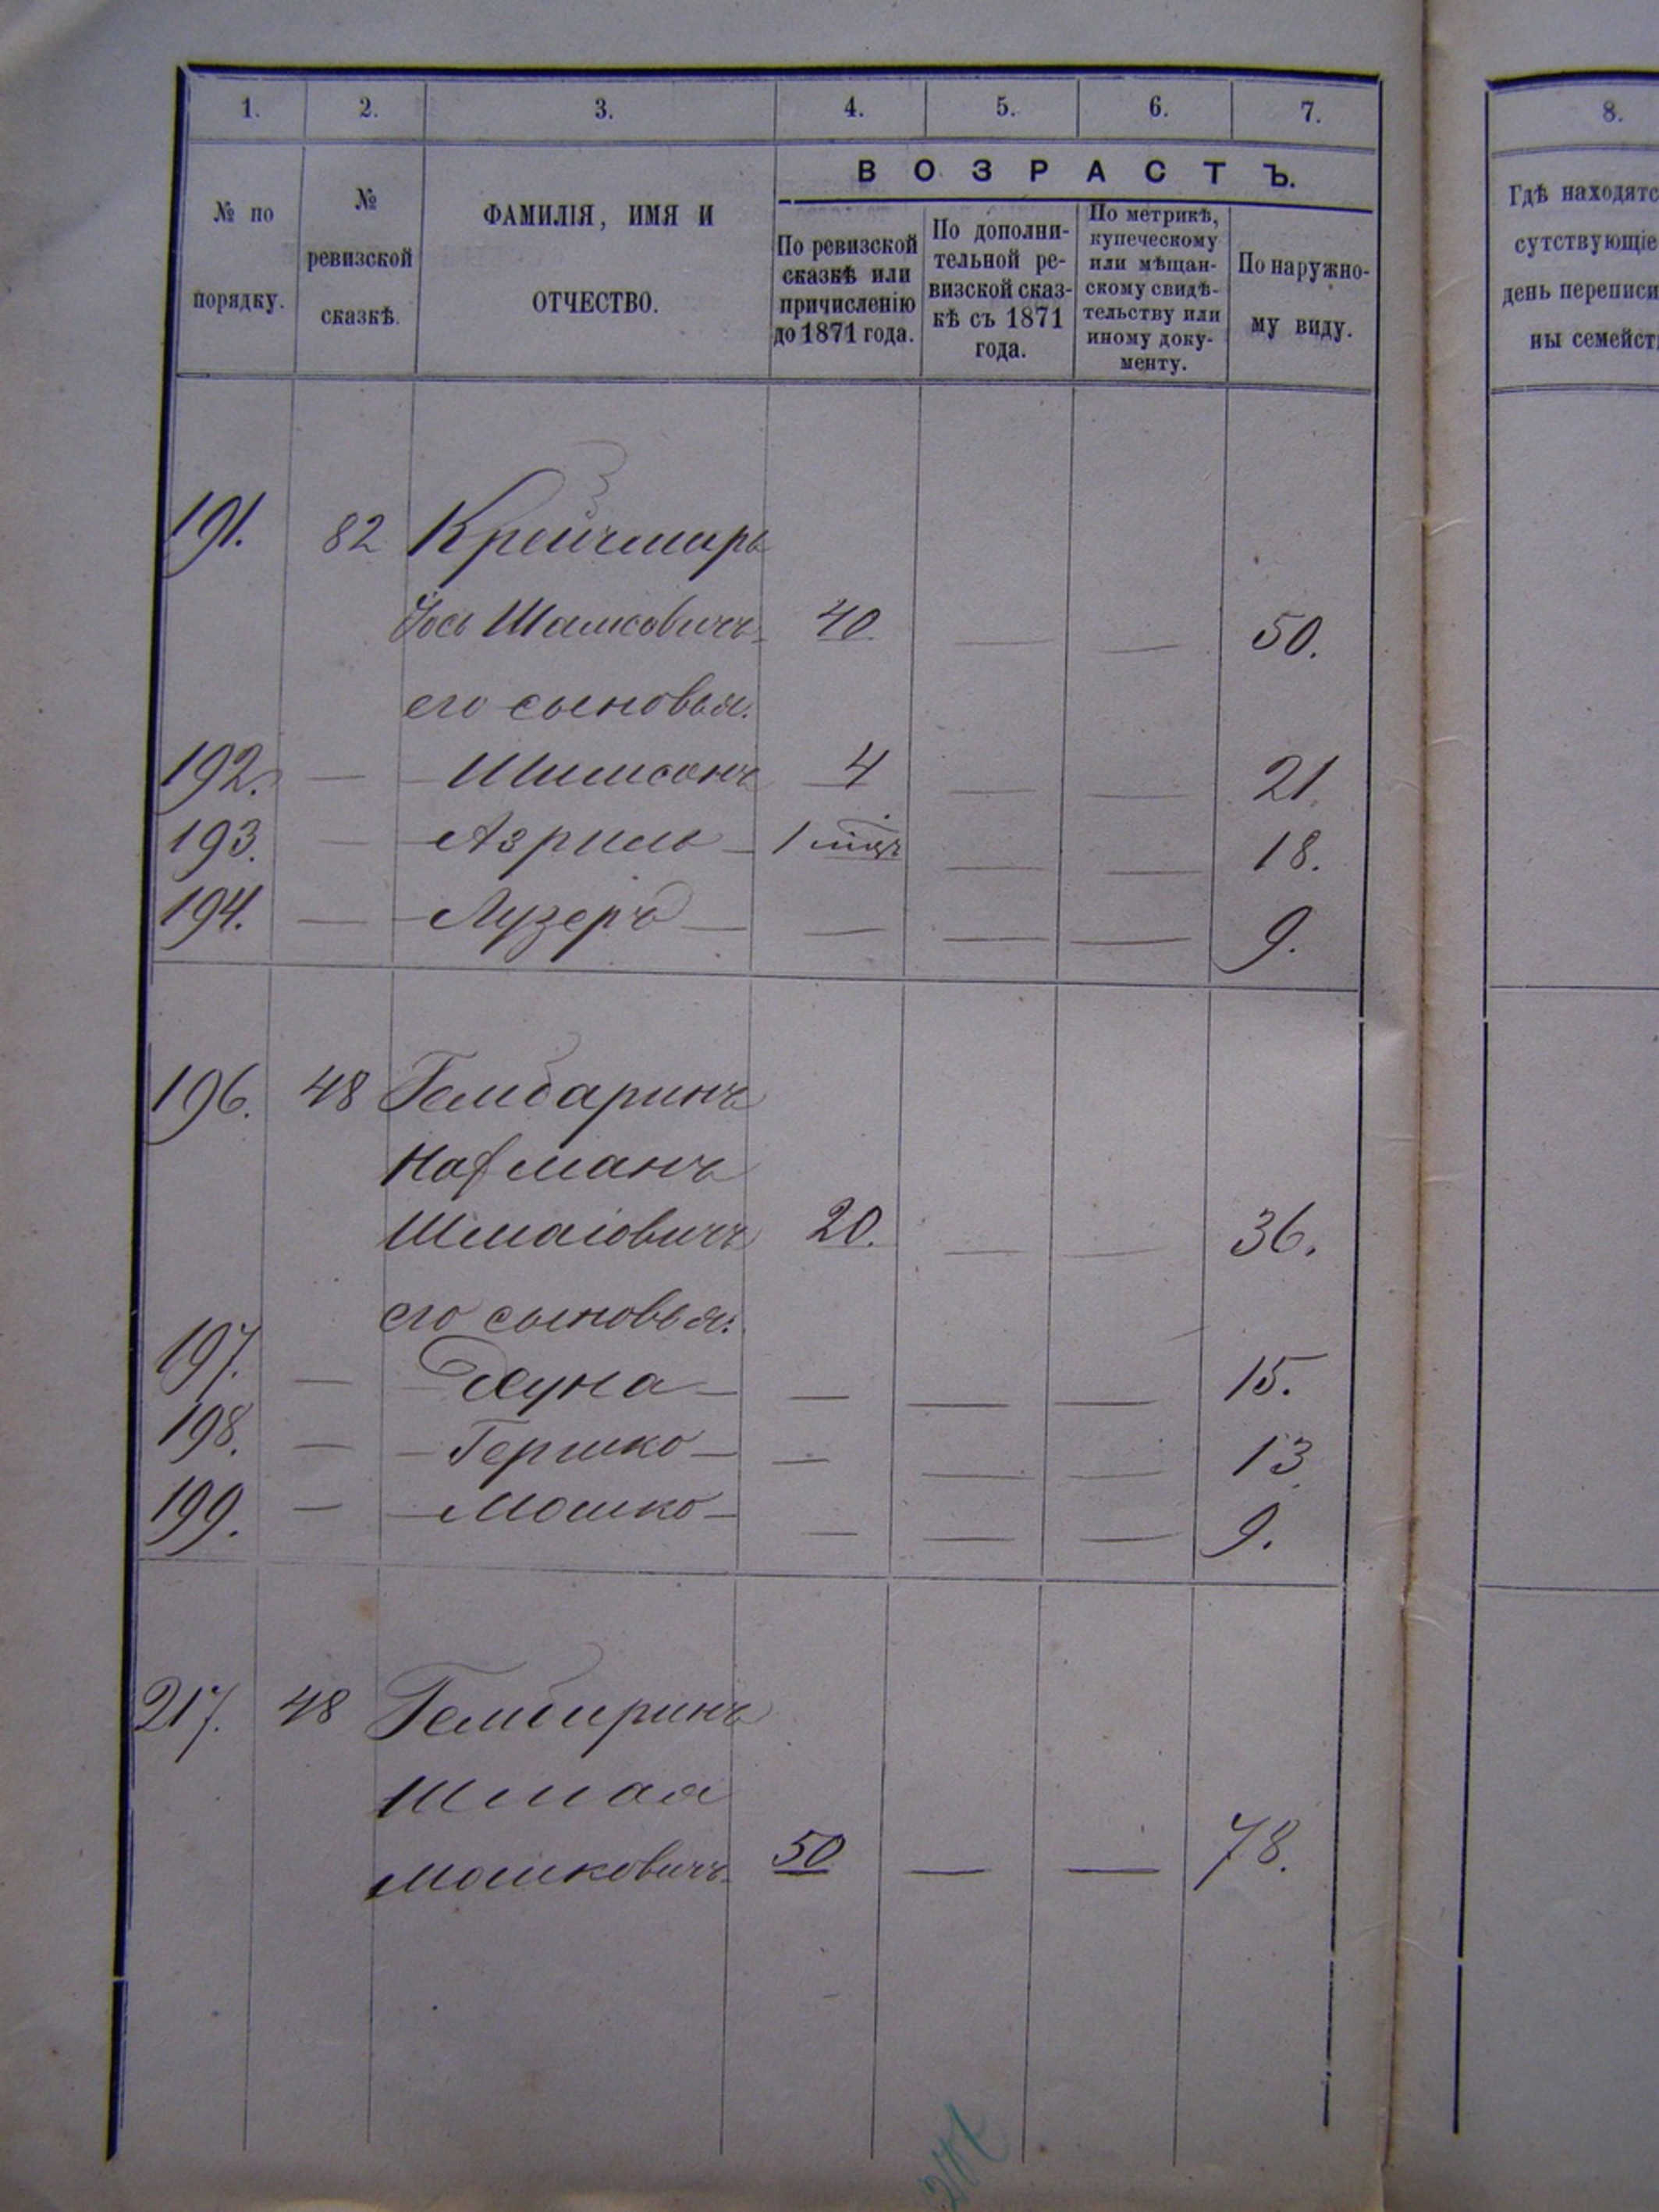 1. 2. 3. 4. 5. 6. 7. 8.
№ по порядку.
№ ревизской сказкѣ.
ФАМИЛІЯ, ИМЯ И ОТЧЕСТВО.
ВОЗРАСТЪ.
По ревизской сказкѣ или причисленію до 1871 года.
По дополни-
тельной ре-
визской сказ-
кѣ съ 1871
года.
По метрикѣ,
купеческому
или мѣщан-
скому свидѣ-
тельству или
иному доку-
менту.
По наружно-
му виду.
Гдѣ находятс
сутствующіе
день переписи
ны семейст
191. 82 Крейчмаръ
Іось Шамсовичъ 40 — — 50.
его сыновья.
192. — Шимсонъ 4 — — 21.
193. — Азриль — 1 мѣц — — 18.
194. — Лузеръ — — — — 9.
196. 48 Гембаринъ
Нафманъ
Шмаіовичъ 20. — — 36.
его сыновья:
197. — Хуна — — — — 15.
198. — Гершко — — — — 13
199. — Мошко — — — — 9.
217. 48 Гембиринъ
Шмая
Мошковичъ 50 — — 78.